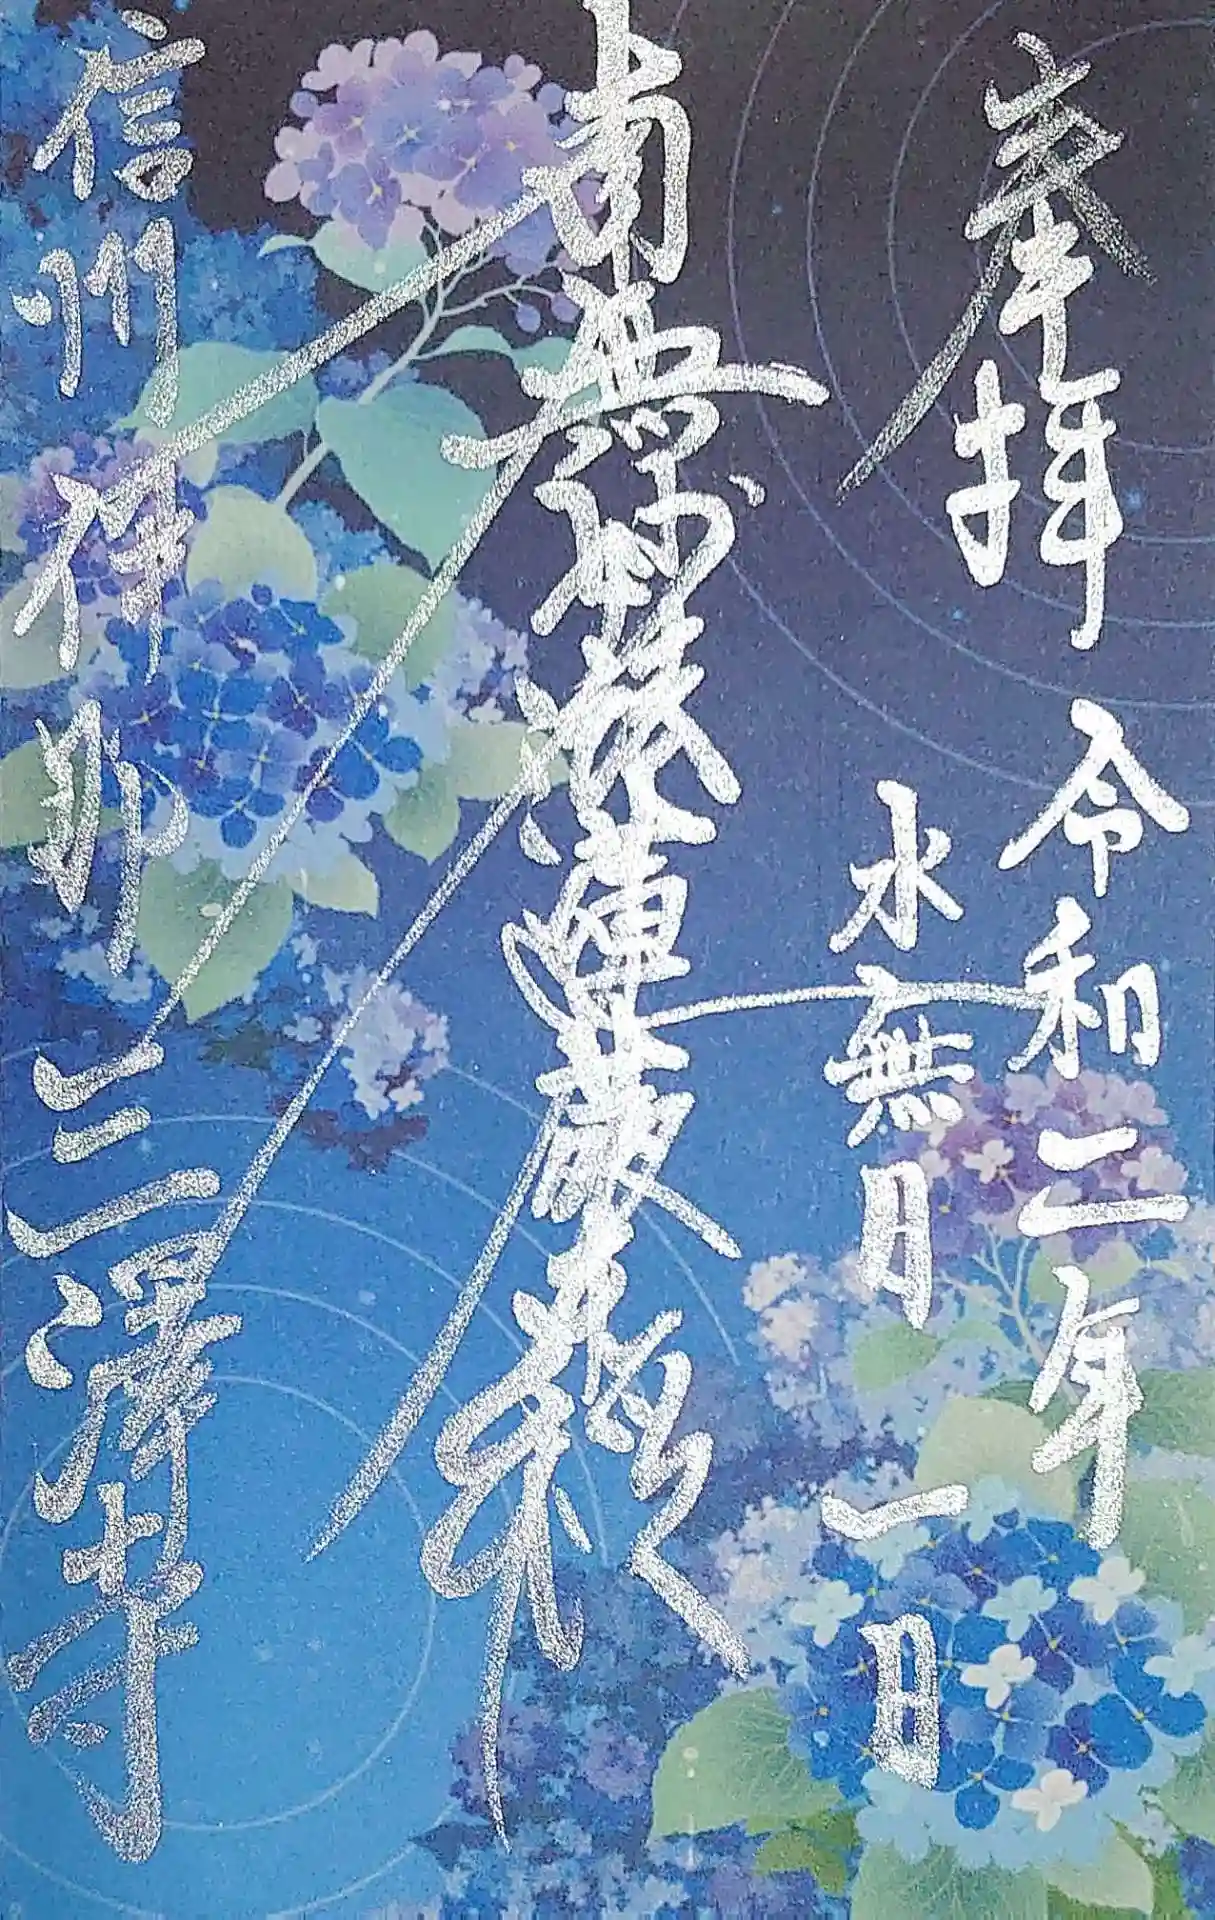 奉拝
令和二年
水無月一日
南無妙法蓮華経
信州伊那三澤寺